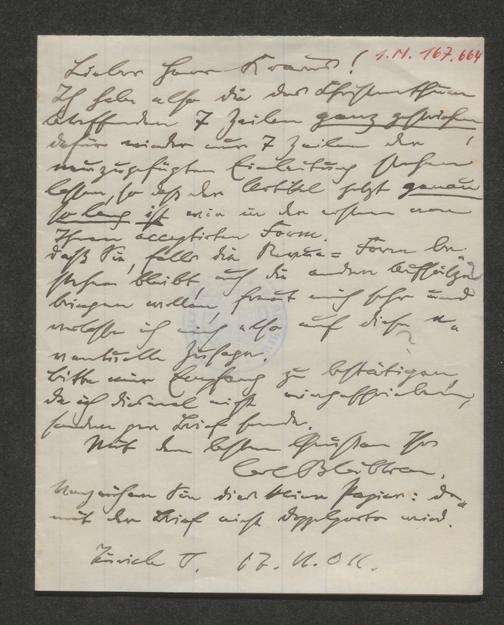 I.N. 167.664
Lieber Herr Kraus!
Ich habe also die das Christenthum
betreffenden 7 Zeilen ganz gestrichen,
dafür wieder nur 7 Zeilen der
neuzugefügten Einleitung stehen
lassen, so daß der Artikel jetzt genau
so lang ist wie in der ersten von
Ihnen acceptirten Form.
Daß Sie, falls die Revue-Form be-
stehen bleibt, auch die andern Aufsätze
bringen wollen, freut mich sehr und
verlasse ich mich also auf diese
eventuelle Zusage.
Bitte nur Empfang zu bestätigen,
da ich diesmal nicht eingeschrieben,
sondern per Brief sende.
Mit den besten Grüßen Ihr
Carl Bleibtreu.
Verzeihen Sie dies kleine Papier: da-
mit der Brief nicht Doppelporto wird.
Zürich